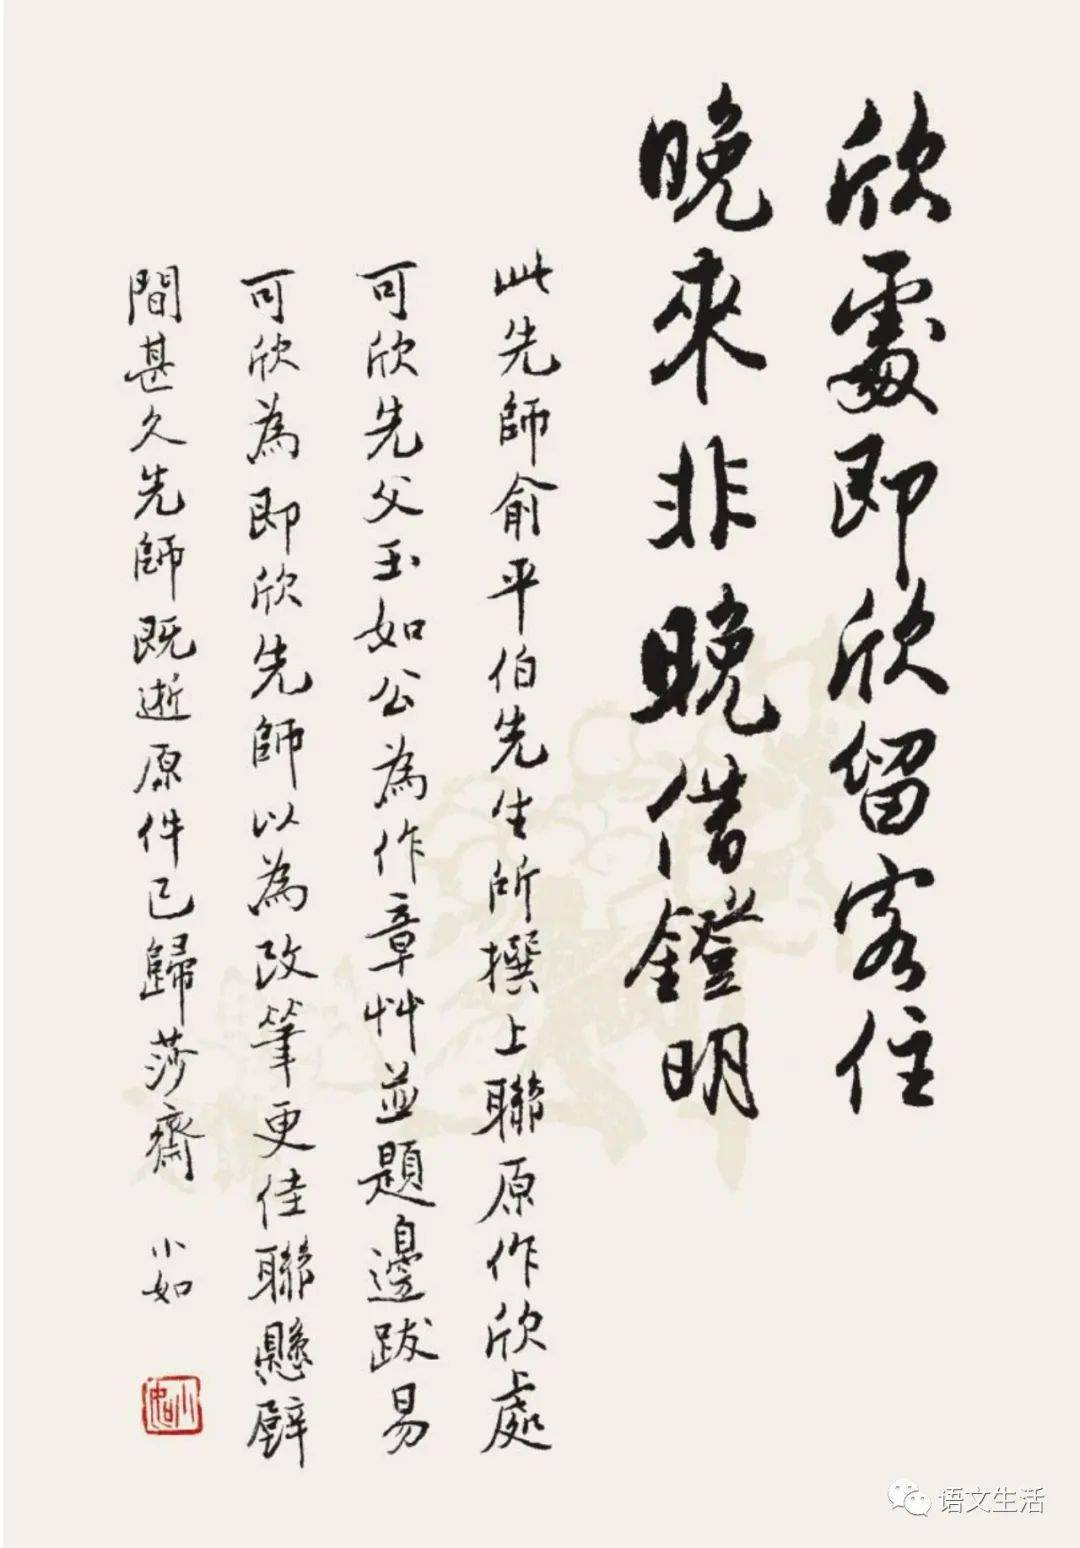 欣處即欣留客住
晚來非晚借鐙明
此先師俞平伯先生所撰上聯原作欣處
可欣先父玉如公為作章艸並題邊跋易
可欣為即欣先師以為改筆更佳聯懸壁
間甚久先師既逝原件已歸莎齋
小如
语文生活